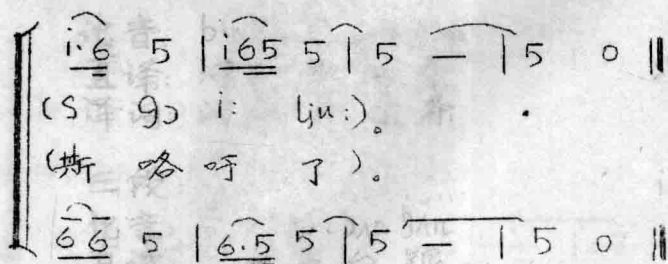 i·6 5 | i65 5 | 5 — | 5 0 ‖
(S gɔ i: lju:)。
(斯 咯 吁 了)。
66 5 | 6·5 5 | 5 — | 5 0 ‖